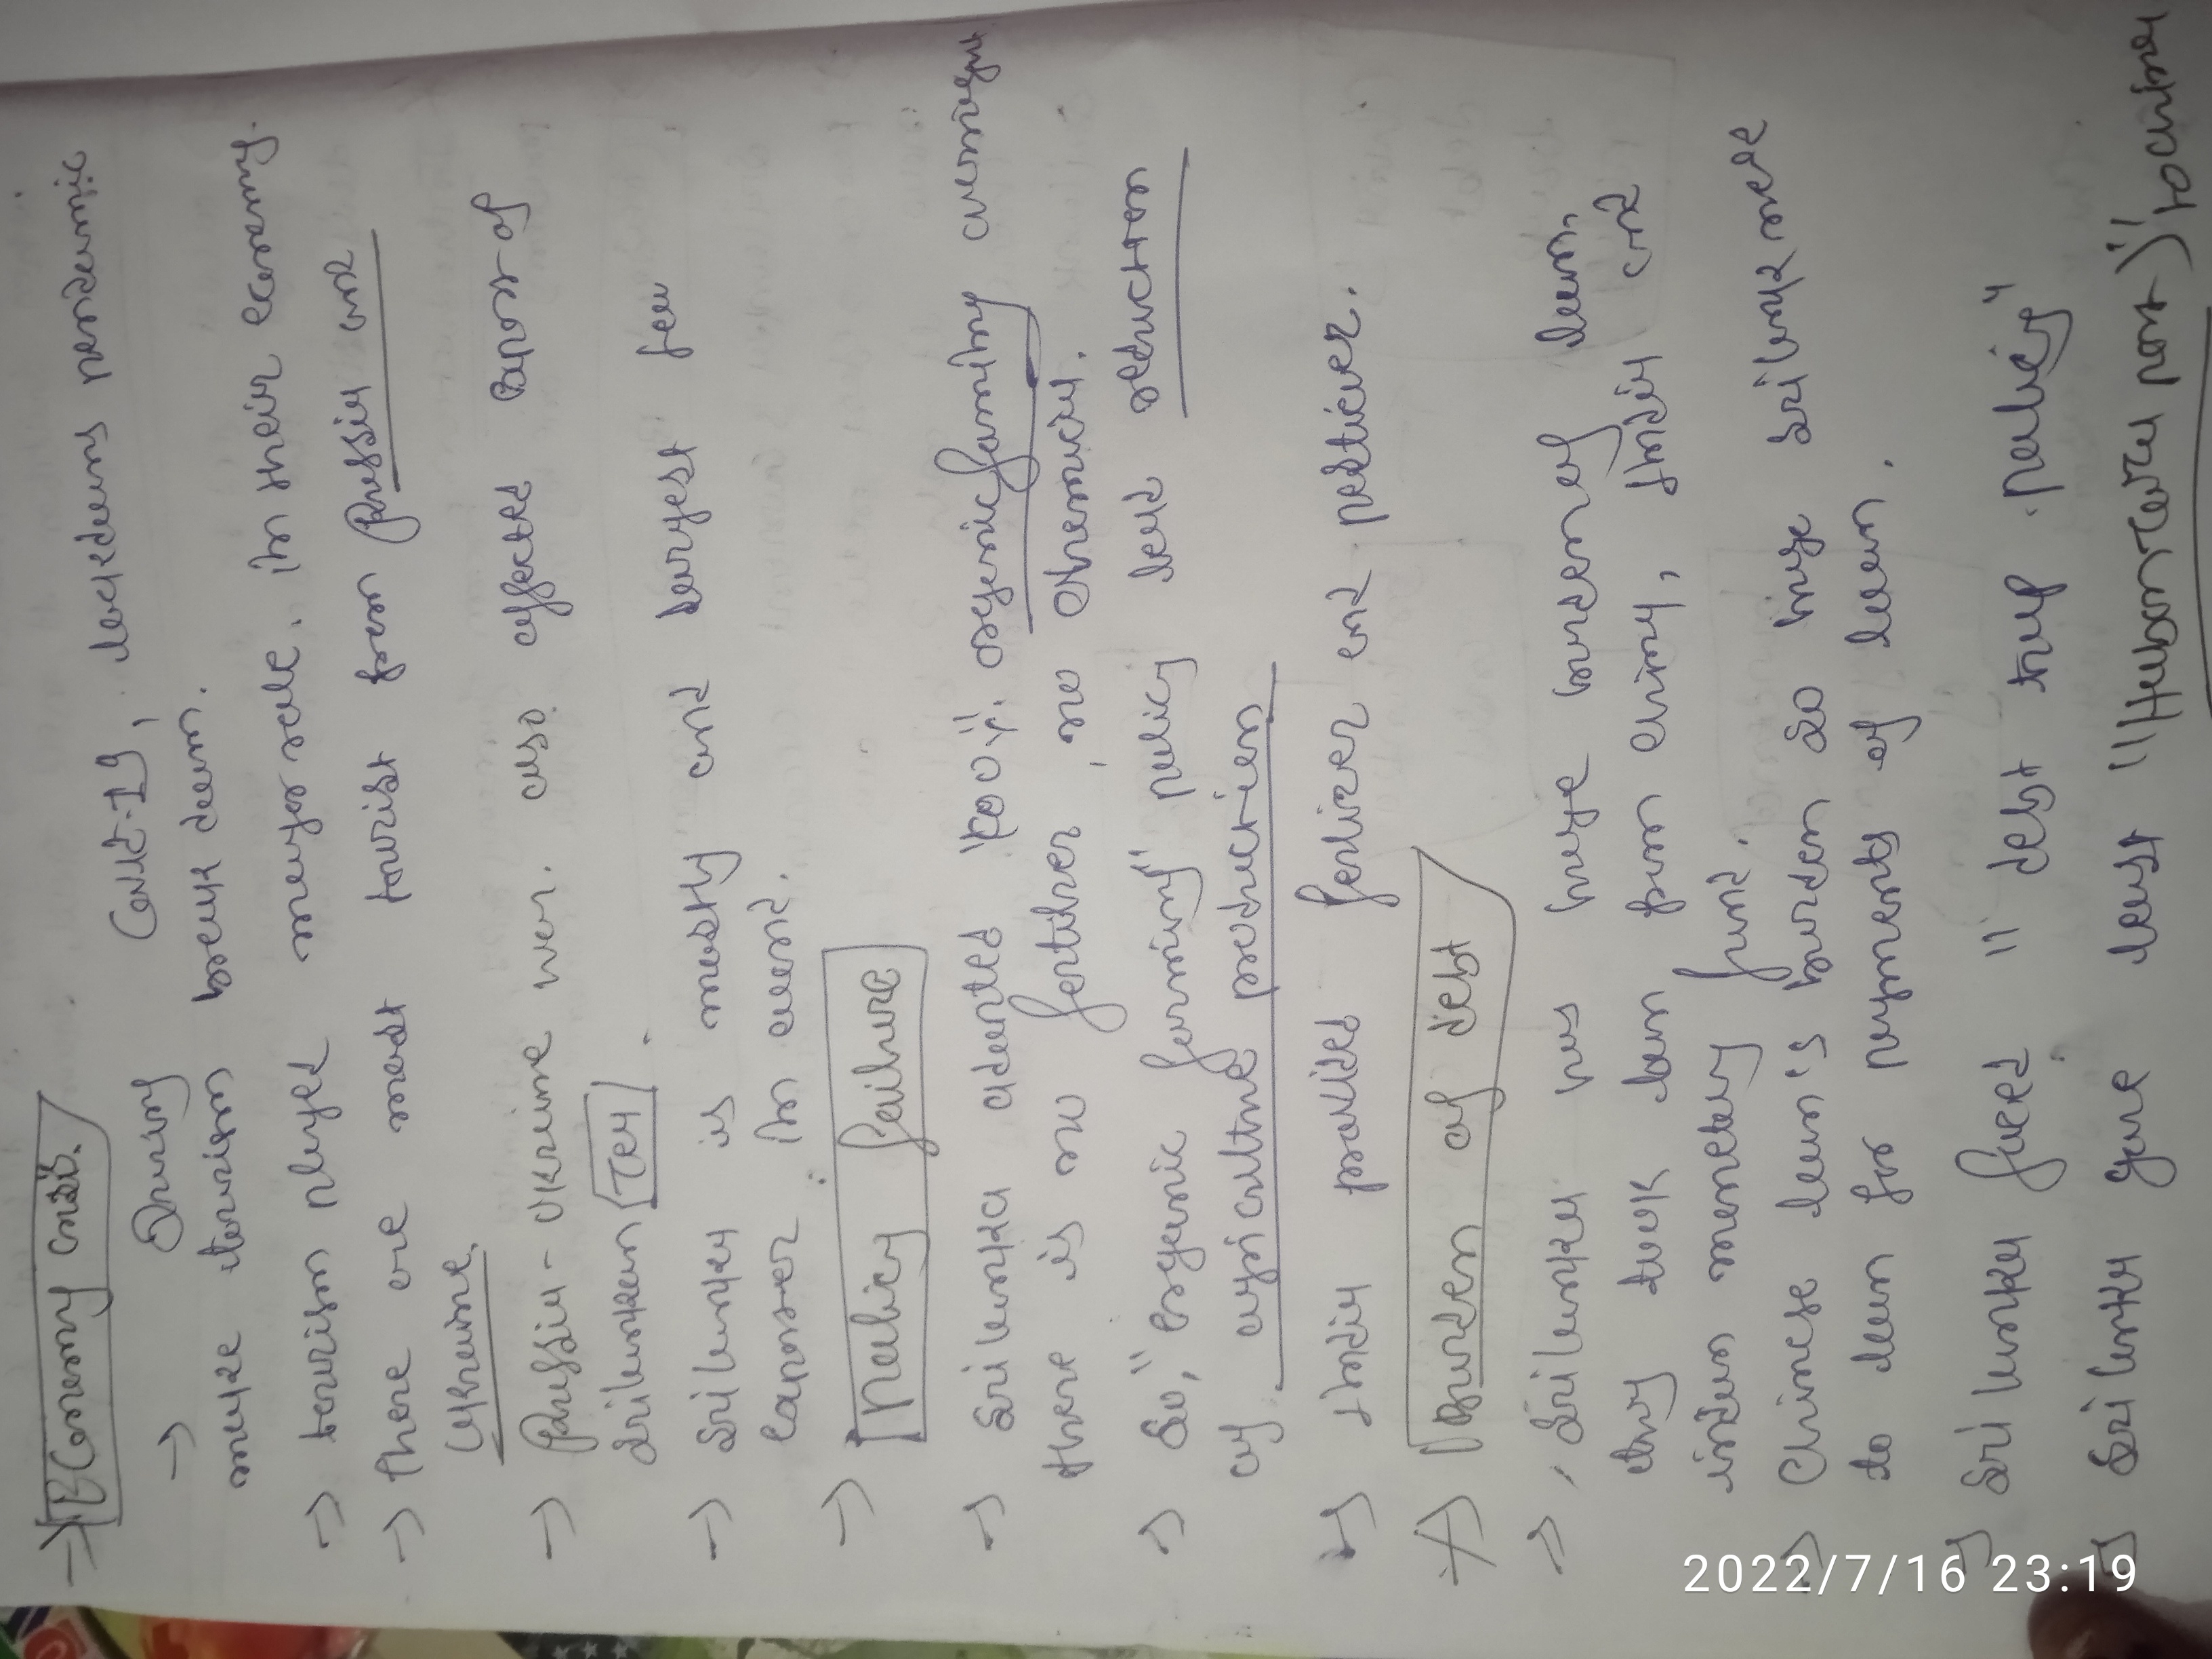 → Economy crisis.
→ During Covid-19, lockdowns pandemic
make tourism back down.
→ tourism played major role. in their economy.
→ there are most tourist from Russia and
Ukraine.
→ Russia-Ukraine war. also effected export of
srilankan Tea.
→ Sri lanka is mostly and largest tea
exporter in world.
→ Policy failure
→ Sri lanka adopted 100%. organic farming
there is no fertilizer, no chemicals.
→ So, "organic farming" policy lead reduction
of agriculture production
→ India provided fertilizer and pesticer.
→ Burden of debt
→ Sri lanka has huge burden of loan.
they took loan from china, India and
monetary fund.
→ Chinese loan's burden so huge Sri lanka
to loan for payments of loan.
→ Sri lanka faced "debt trap policy"
→ Sri lanka gave "Hambantota port"
2022/7/16 23:19